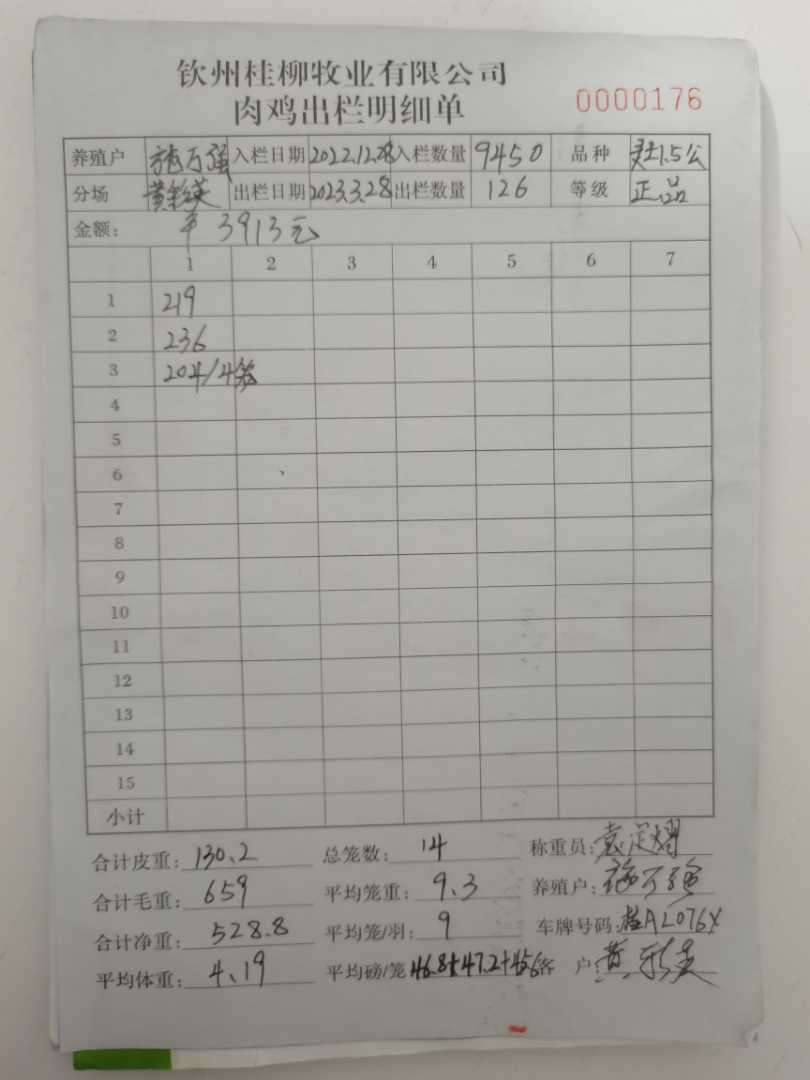 钦州桂柳牧业有限公司
肉鸡出栏明细单 0000176
养殖户 施万强 入栏日期 2022.12.28 入栏数量 9450 品种 1.5公
分场 黄彩英 出栏日期 2023.3.28 出栏数量 126 等级 正品
金额: ¥ 3913元
1 2 3 4 5 6 7
1 219
2 236
3 204/4笼
4
5
6
7
8
9
10
11
12
13
14
15
小计
合计皮重: 130.2 总笼数: 14 称重员: 袁
合计毛重: 659 平均笼重: 9.3 养殖户: 施万强
合计净重: 528.8 平均笼/羽: 9 车牌号码: 桂AL076X
平均体重: 4.19 平均磅/笼 46.8+47.2+45.6 客户: 黄彩英